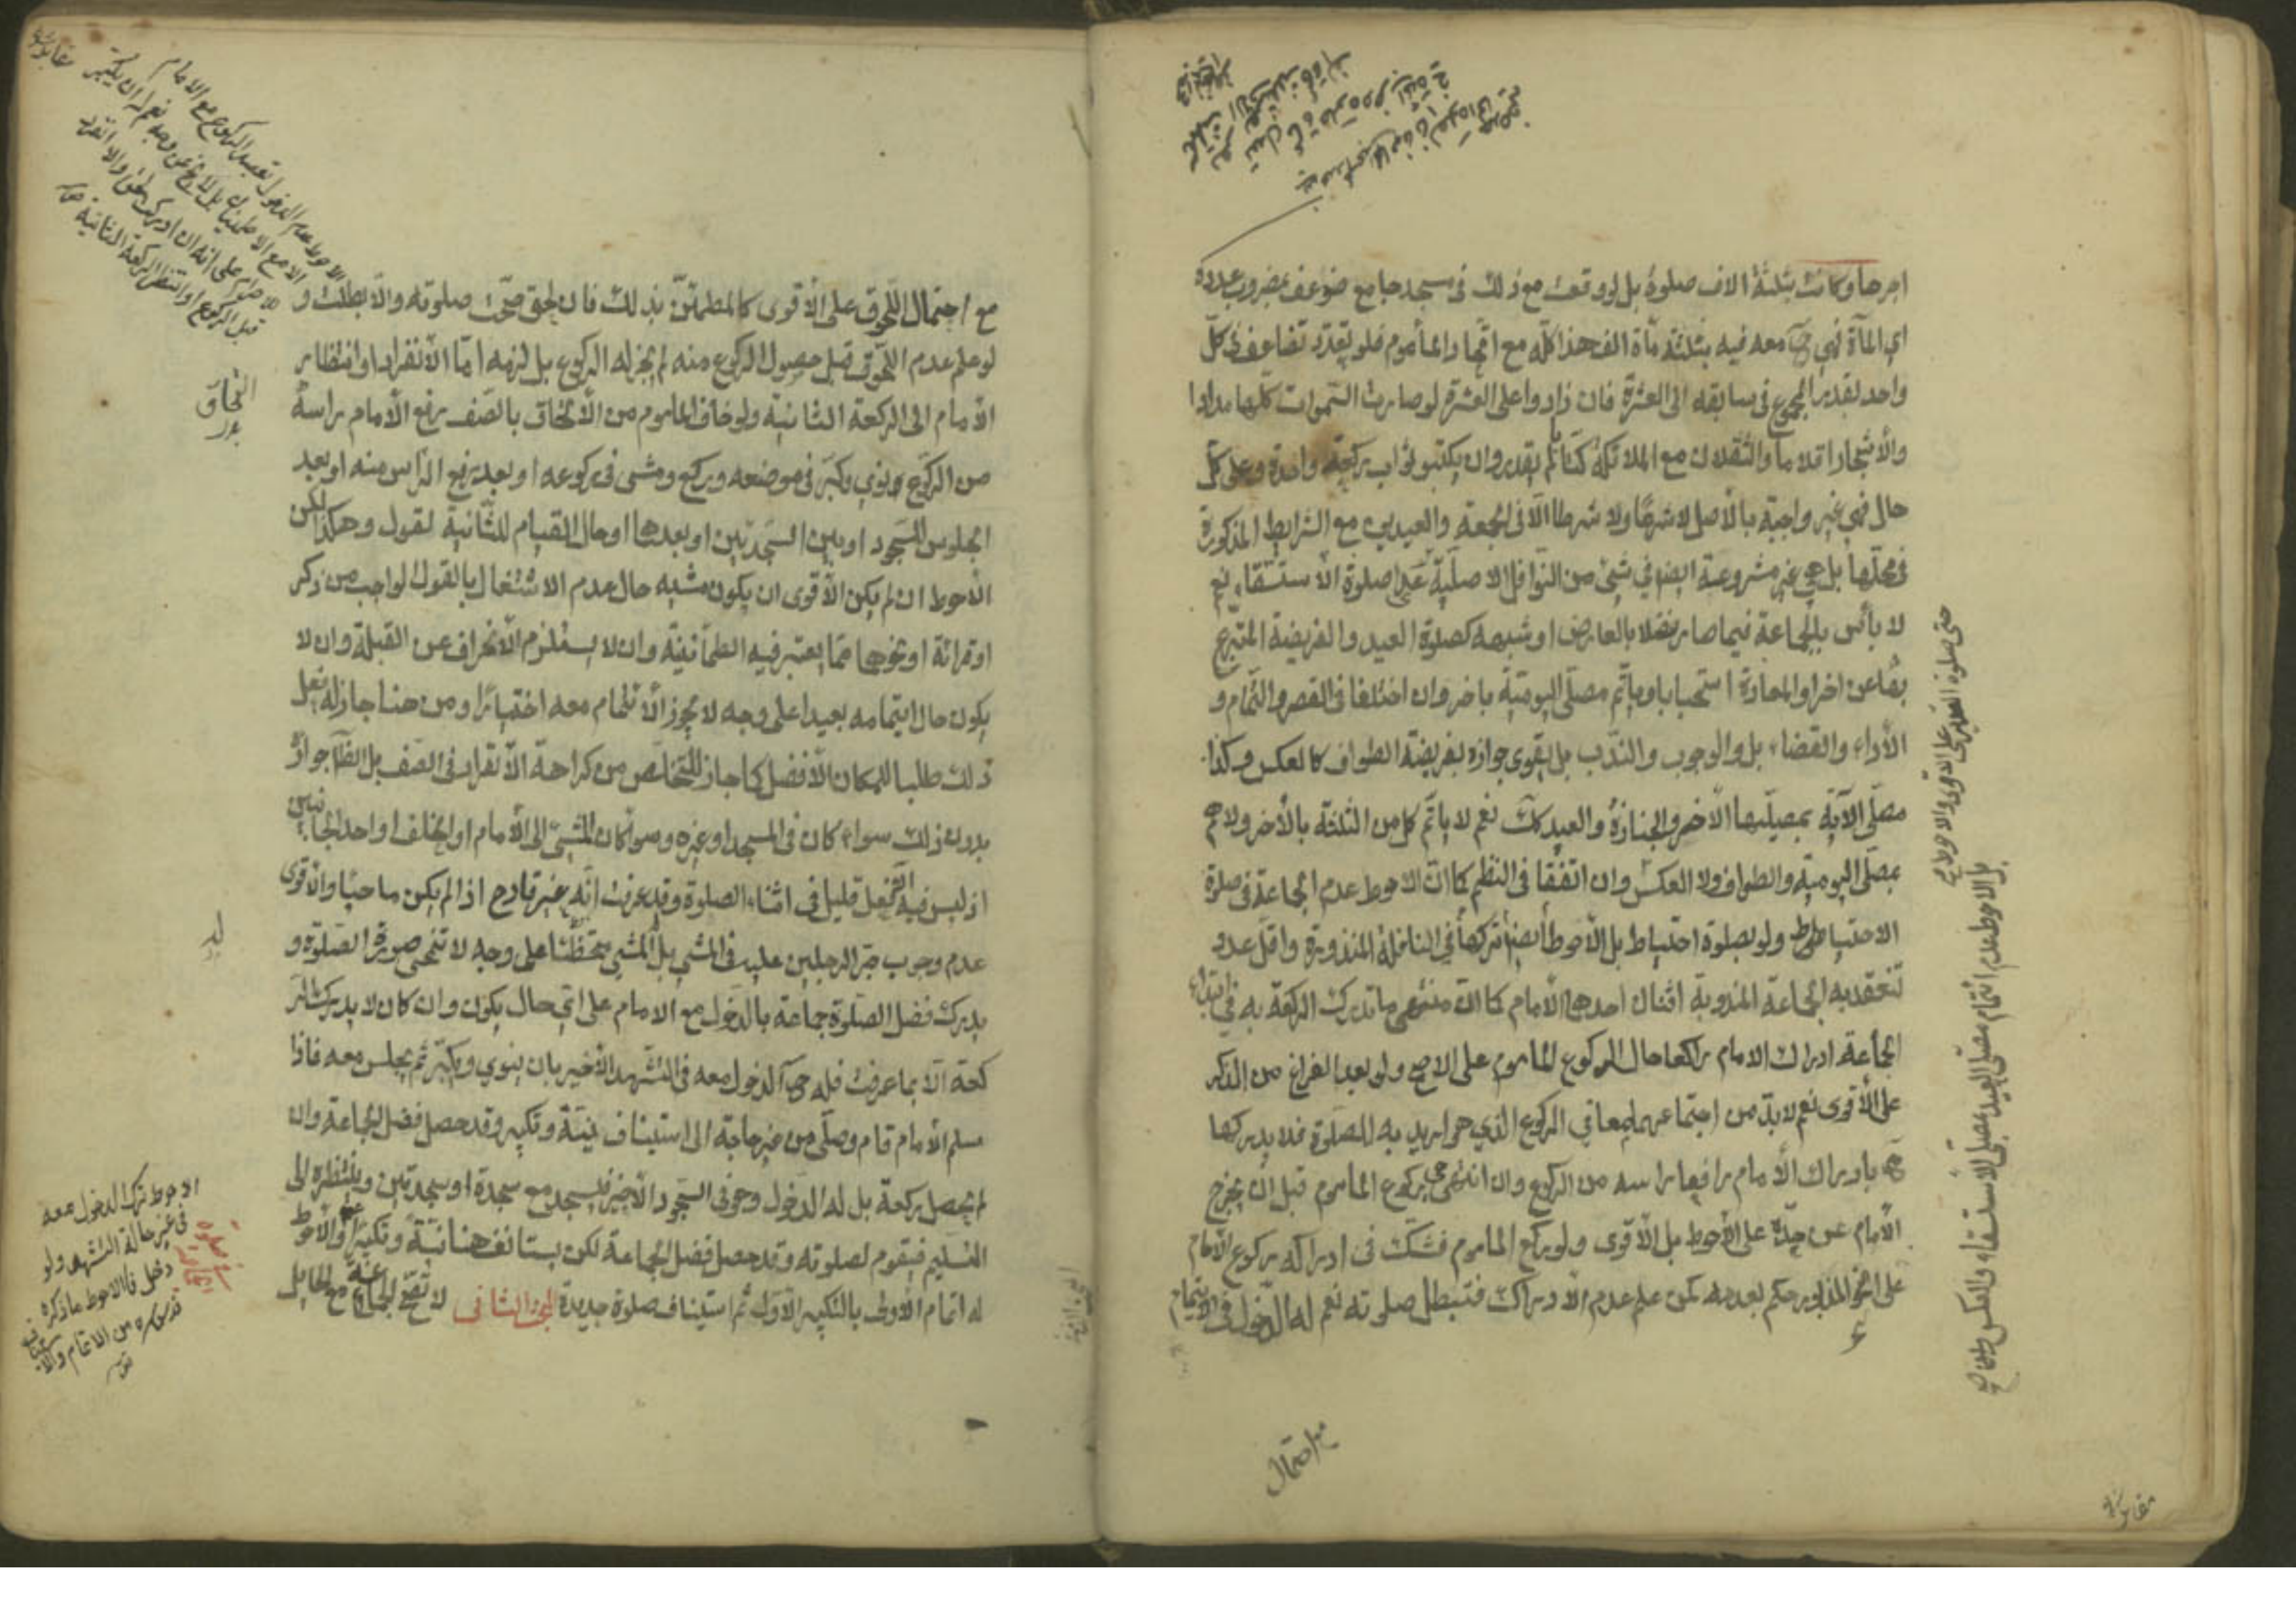 اجرها وكانت بثلثة الاف صلوة بل لو وقعت مع ذلك فى مسجد جامع ضوعف بمضروب عدده
اي المأة فهي ح معه فيه بثلثة مأة الف هذا كله مع اتحاد المأموم فلو تعدد تضاعف فى كل
واحد بقدر المجموع فى سابقه الى العشرة فان زادوا على العشرة لو صارت السموات كلها مدادا
والأشجار اقلاما والثقلان مع الملائكة كتابا لم يقدروا ان يكتبوا ثواب ركعة واحدة وعلى كل
حال فهي غير واجبة بالأصل لا شرعا ولا شرطا الا فى الجمعة والعيدين مع الشرايط المذكورة
فى محلها بل هي غير مشروعة ايضا في شيئ من النوافل الاصلية عدا صلوة الاستسقاء نعم
لا بأس بالجماعة فيما صار نفلا بالعارض او شبهه كصلوة العيد والفريضة المتبرع
بها عن اخر او المعادة استحبابا ويأتم مصلى اليومية باخر وان اختلفا فى القصر والتمام و
الأداء والقضاء بل والوجوب والندب بل يقوى جوازه بفريضة الطواف كالعكس وكذا
مصلى الآية بمصليها الأخر والجنازة والعيد كك نعم لا يأتم كل من الثلثة بالأخر ولا هم
بمصلى اليومية والطواف ولا العكس وان اتفقا فى النظم كما ان الاحوط عدم الجماعة فى صلوة
الاحتياط ولو بصلوة احتياط بل الأحوط ايضا تركها في النافلة المنذورة واقل عدد
تنعقد به الجماعة المندوبة اثنان احدهما الأمام كما ان منتهى ما تدرك الركعة به في ابتداء
الجماعة ادراك الامام راكعا حال الركوع المأموم على الاصح ولو بعد الفراغ من الذكر
على الأقوى نعم لا بد من اجتماعهما معا في الركوع الذي هو اريد به الصلوة فلا يدركها
ح بادراك الأمام رافعا راسه من الركوع وان انتهى ركوع المأموم قبل أن يخرج
الأمام عن حده على الأحوط بل الأقوى ولو ركع المأموم فشك فى ادراكه ركوع الأمام
على النحو المذبور حكم بعدمه كمن علم عدم الأدراك فتبطل صلوته نعم له الدخول فى الايتمام
حتى صلوة الغدير على الاقوى والاحوط
بل الاحوط عدم ائتمام مصلى العيد بمصلى الاستسقاء والعكس
مع احتمال
مع احتمال اللحوق على الأقوى كالمطمئن بذلك فان لحق صحت صلوته والا بطلت و
لو علم عدم اللحوق قبل حصول الركوع منه لم يجز له الركوع بل لزمه اما الأنفراد او انتظار
الأمام الى الركعة الثانية ولو خاف المأموم من الألتحاق بالصف رفع الأمام راسه
من الركوع نوي وكبر فى موضعه وركع ومشى فى ركوعه او بعد رفع الرأس منه او بعد
الجلوس للسجود او بين السجدتين او بعدها او حال القيام للثانية لقول وهكذا لكن
الأحوط ان لم يكن الأقوى ان يكون مشيه حال عدم الاشتغال بالقول الواجب من ذكر
او قرائة او نحوهما مما يعتبر فيه الطمأنينة وان لا يستلزم الأنحراف عن القبلة وان لا
يكون حال ايتمامه بعيدا على وجه لا يجوز الأئتمام معه اختيارا ومن هنا جاز له فعل
ذلك طلبا للمكان الأفضل كما جاز للتخلص من كراهة الأنفراد فى الصف بل الظاهر جوازه
بدون ذلك سواء كان فى المسجد او غيره وسواء كان المشي الى الأمام او الخلف او احد الجانبين
اذ ليس فيه الا فعل قليل فى اثناء الصلوة وقد عرفت انه غير قادح اذا لم يكن ماحيا والأقوى
عدم وجوب جر الرجلين عليه فى المشي بل المشي متحفظا على وجه لا تنمحى صورة الصلوة و
يدرك فضل الصلوة جماعة بالدخول مع الامام على اي حال يكون وان كان لا يدرك الر
كعة الا بما عرفت فله ح الدخول معه فى التشهد الأخير بان ينوي ويكبر ثم يجلس معه فاذا
سلم الأمام قام وصلى من غير حاجة الى استيناف نية وتكبير وقد حصل فضل الجماعة وان
لم يحصل ركعة بل له الدخول وهو فى السجود الأخير فيسجد مع سجدة او سجدتين وينتظره الى
التسليم فيقوم لصلوته وقد حصل فضل الجماعة لكن يستانف هنا نية وتكبيرا والأحوط
له اتمام الأولى بالتكبير الأول ثم استيناف صلوة جديدة البحث الثانى لا تصح الجماعة مع الحايل
الاحوط عدم الدخول بقصد الركوع مع الامام
الا مع الاطمينان
قبل الركوع او انتظر الركعة الثانية
التحاق
الاحوط ترك الدخول معه
فى غير حالة التشهد ولو
دخل فالاحوط ما ذكره
قدس سره من الاتمام والاستيناف